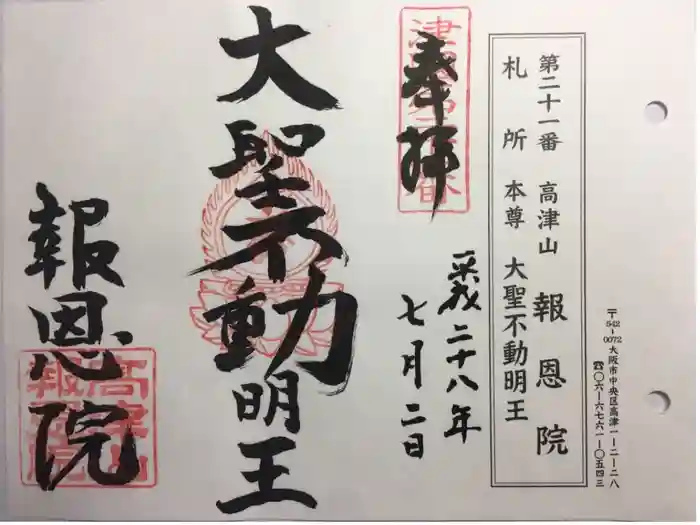 第二十一番 高津山 報恩院
札所 本尊 大聖不動明王
〒542-0072 大阪市中央区高津一-二-二八
☎〇六-六七六一-〇五四三
奉拝
平成二十八年
七月二日
大聖不動明王
報恩院